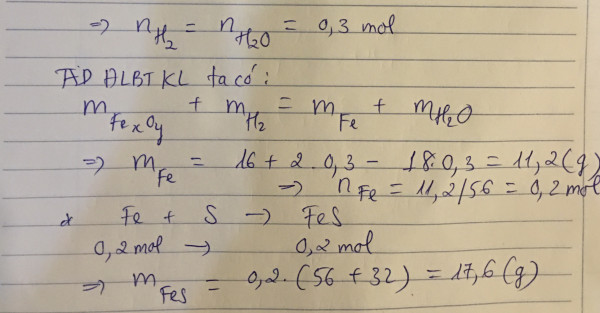 ⇒ n H₂ = n H₂O = 0,3 mol
AD ĐLBTKL ta có:
m FexOy + m H₂ = m Fe + m H₂O
⇒ m Fe = 16 + 2.0,3 - 18.0,3 = 11,2(g)
⇒ n Fe = 11,2/56 = 0,2 mol
* Fe + S → FeS
0,2 mol → 0,2 mol
⇒ m FeS = 0,2.(56 + 32) = 17,6(g)